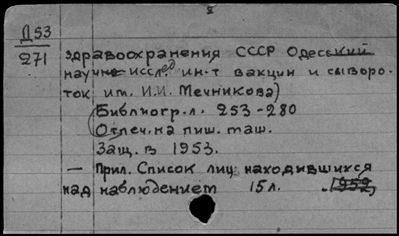 2
Д53
271
здравоохранения СССР Одесский
научно исслед ин-т вакцин и сыворо-
ток им. И.И. Мечникова)
(Библиогр. л. 253-280
Отпеч. на пиш. маш.
Защ. в 1953.
— Прил. Список лиц находившихся
над наблюдением 15 л. 1952,